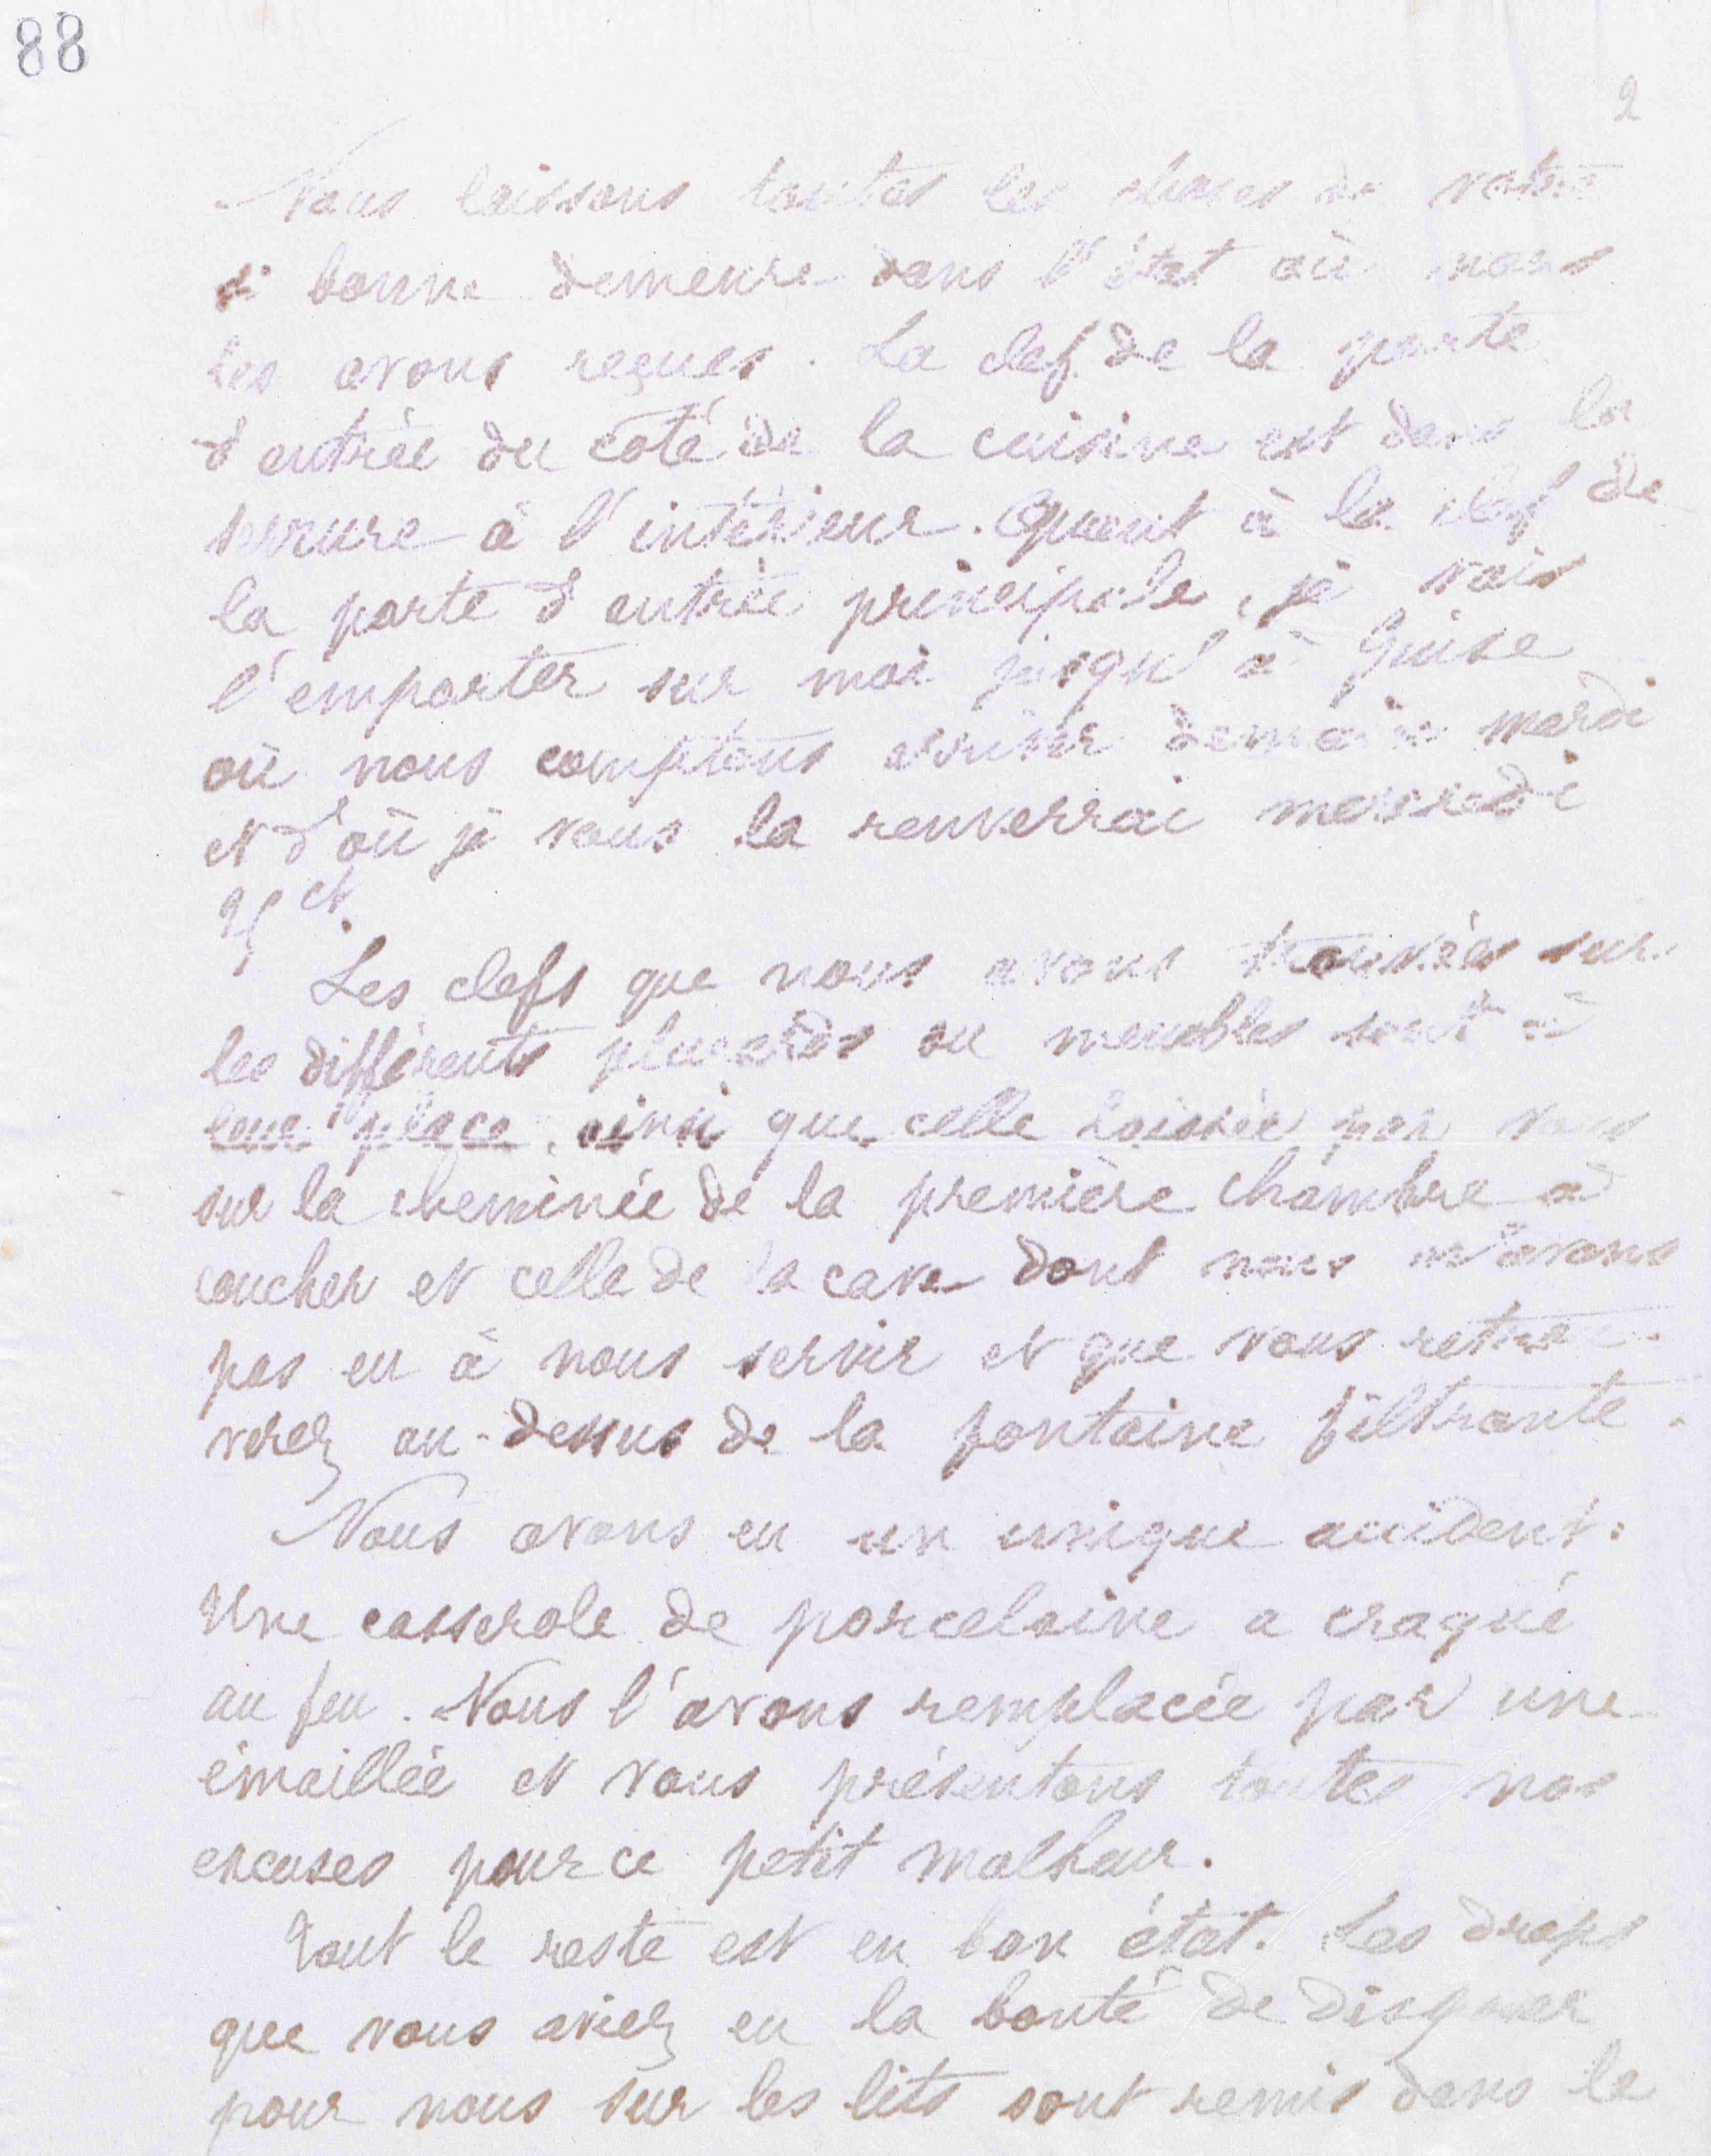 88
2
Nous laissons toutes les choses de votre
si bonne demeure dans l'état où nous
les avons reçues. La clef de la porte
d'entrée du côté de la cuisine est dans la
serrure à l'intérieur. Quant à la clef de
la porte d'entrée principale, je vais
l'emporter sur moi jusqu'à Guise
où nous comptons arriver demain mardi
et d'où je vous la renverrai mercredi
25 ct.
Les clefs que nous avons trouvées sur
les différents placards ou meubles sont à
leur place, ainsi que celle laissée par vous
sur la cheminée de la première chambre à
coucher et celle de la cave dont nous n'avons
pas eu à nous servir et que vous retrou-
verez au-dessus de la fontaine filtrante.
Nous avons eu un unique accident.
Une casserole de porcelaine a craqué
au feu. Nous l'avons remplacée par une
émaillée et vous présentons toutes nos
excuses pour ce petit malheur.
Tout le reste est en bon état. Les draps
que vous aviez eu la bonté de disposer
pour nous sur les lits sont remis dans le